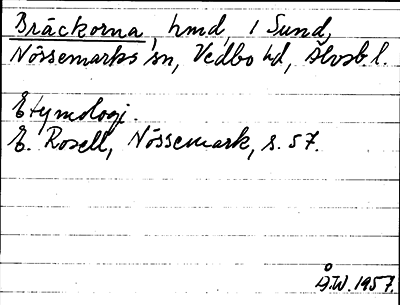 Bräckorna, hmd, i Sund,
Nössemarks sn, Vedbo hd, Älvsb l.
Etymologi.
E. Rosell, Nössemark, s. 57.
Å.W. 1957.